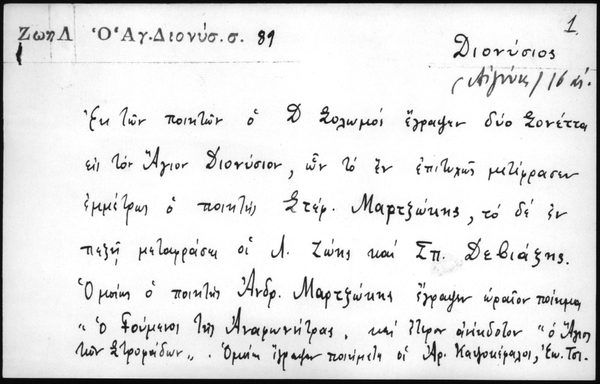 1.
Ζωη Λ Ὁ Ἁγ. Διονύσ. σ. 89
Διονύσιος
(Αἰγίνης) 16 αἰ.
Ἐκ τῶν ποιητῶν ὁ Δ Σολωμός ἔγραψεν δύο Σονέττα
εἰς τόν Ἅγιον Διονύσιον, ὧν τό ἕν ἐπιτυχῶς μετέφρασεν
ἐμμέτρως ὁ ποιητής Στέφ. Μαρτζώκης, τό δέ ἕν
πεζῇ μεταφράσει οἱ Λ. Ζώης καί Σπ. Δεβιάζης.
Ὁμοίως ὁ ποιητής Ἀνδρ. Μαρτζώκης ἔγραψεν ὡραῖον ποίημα
"Ὁ Γούμενος τῆς Ἀναφωνήτρας, καί ἕτερον ἀνέκδοτον "ὁ Ἅγιος
τῶν Στροφάδων". Ὁμοίως ἔγραψαν ποιήματα οἱ Ἀρ. Καψοκέφαλος, Ἰω. Τσι-